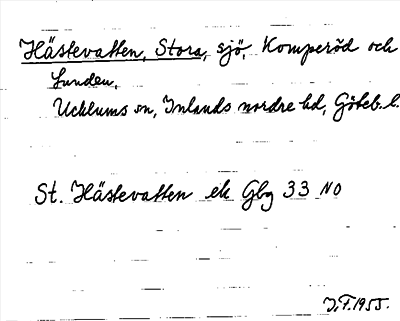 Hästevatten, Stora, sjö, Komperöd och
Lunden,
Ucklums sn, Inlands nordre hd, Göteb. l.
St. Hästevatten ek Gbg 33 NO
J.F. 1955.